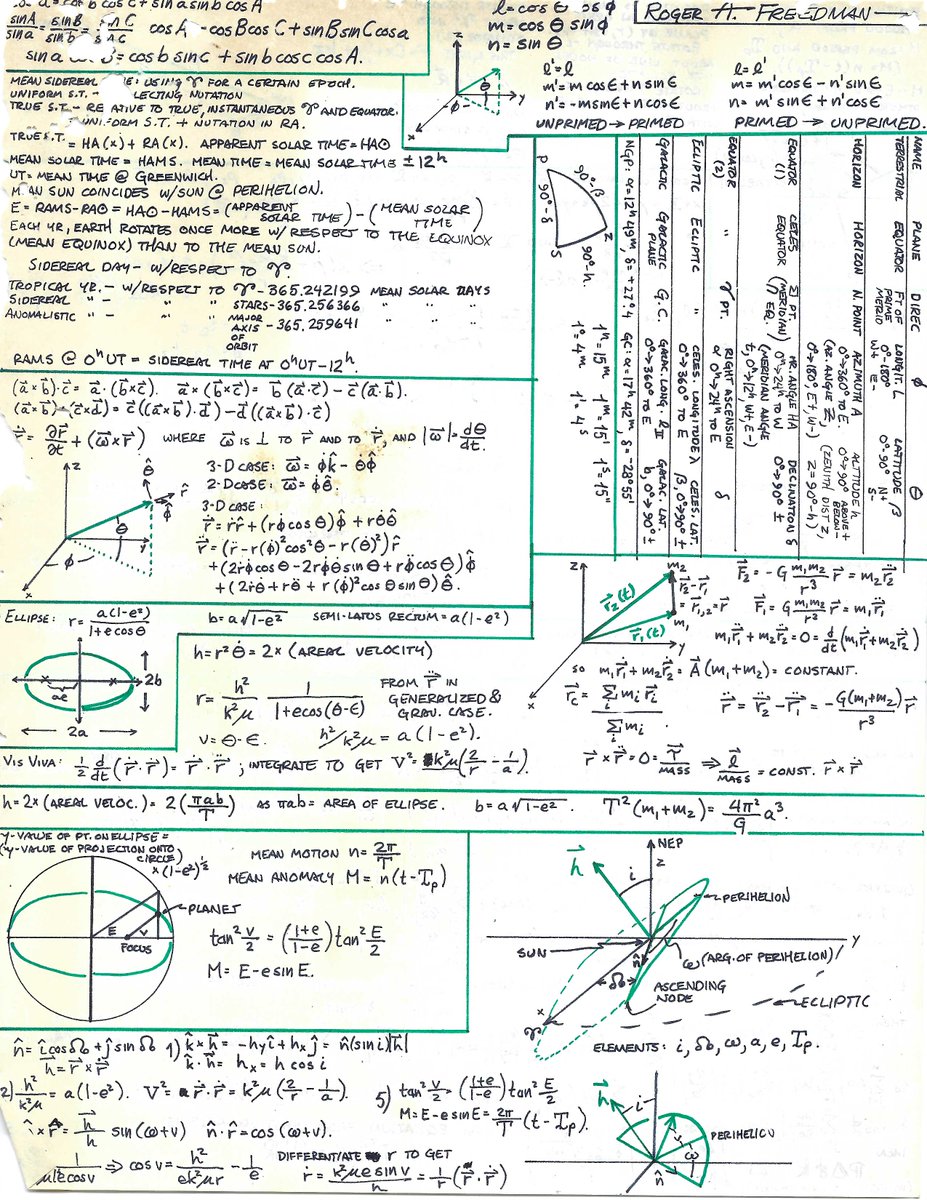 cos a = cos b cos c + sin a sin b cos A
sinA/sina = sinB/sinb = sinC/sinc   cos A = -cos B cos C + sin B sin C cos a
sin a cos B = cos b sin c + sin b cos c cos A.
l = cos θ cos φ
m = cos θ sin φ
n = sin θ
ROGER A. FREEDMAN
l' = l
m' = m cos ϵ + n sin ϵ
n' = -m sin ϵ + n cos ϵ
UNPRIMED → PRIMED
l = l'
m = m' cos ϵ - n' sin ϵ
n = m' sin ϵ + n' cos ϵ
PRIMED → UNPRIMED.
z
θ
φ
y
x
MEAN SIDEREAL USING ♈ FOR A CERTAIN EPOCH.
UNIFORM S.T. - LECTING NUTATION
TRUE S.T. - RELATIVE TO TRUE, INSTANTANEOUS ♈ AND EQUATOR.
UNIFORM S.T. + NUTATION IN RA.
TRUE S.T. = HA(x) + RA(x). APPARENT SOLAR TIME = HA⊙
MEAN SOLAR TIME = HAMS. MEAN TIME = MEAN SOLAR TIME ± 12ʰ
UT = MEAN TIME @ GREENWICH.
MEAN SUN COINCIDES W/SUN @ PERIHELION.
E = RAMS - RA⊙ = HA⊙ - HAMS = (APPARENT SOLAR TIME) - (MEAN SOLAR TIME)
EACH YR, EARTH ROTATES ONCE MORE W/ RESPECT TO THE EQUINOX
(MEAN EQUINOX) THAN TO THE MEAN SUN.
SIDEREAL DAY - W/RESPECT TO ♈.
TROPICAL YR. - W/RESPECT TO ♈ - 365.242199 MEAN SOLAR DAYS
SIDEREAL " - " " STARS - 365.256366 " " "
ANOMALISTIC " - " " MAJOR AXIS OF ORBIT - 365.259641 " " "
RAMS @ 0ʰ UT = SIDEREAL TIME AT 0ʰ UT - 12ʰ
NAME PLANE DIREC φ θ
TERRESTRIAL EQUATOR PT OF PRIME MERID LONGIT. L 0°-180° W+ E- LATITUDE β 0°-90° N+ S-
HORIZON HORIZON N. POINT AZIMUTH A 0°→360° TO E. (AZ. ANGLE Z, 0°→180° E+, W-) ALTITUDE h 0°→90° ABOVE+ BELOW- (ZENITH DIST Z, Z = 90°-h)
EQUATOR (1) CELES EQUATOR Σ PT. (MERIDIAN ∩ EQ.) HR. ANGLE HA 0ʰ→24ʰ TO W (MERIDIAN ANGLE t, 0ʰ→12ʰ, W+ E-) DECLINATION δ 0°→90° ±
EQUATOR (2) " ♈ PT. RIGHT ASCENSION α 0ʰ→24ʰ TO E δ
ECLIPTIC ECLIPTIC " CELES. LONGITUDE λ 0°→360° TO E CELES. LAT. β, 0°→90° ±
GALACTIC GALACTIC PLANE G.C. GALAC. LONG. ℓII 0°→360° TO E GALAC. LAT. b, 0°→90° ±
NGP: α = 12ʰ 49ᵐ, δ = +27°.4 GC: α = 17ʰ 42ᵐ, δ = -28°55'
1ʰ = 15° 1ᵐ = 15' 1ˢ = 15"
1° = 4ᵐ 1' = 4ˢ
P
90°-β
Z
90°-δ
90°-h
S
(a⃗ x b⃗)·c⃗ = a⃗·(b⃗ x c⃗). a⃗ x (b⃗ x c⃗) = b⃗(a⃗·c⃗) - c⃗(a⃗·b⃗).
(a⃗ x b⃗) x (c⃗ x d⃗) = c⃗((a⃗ x b⃗)·d⃗) - d⃗((a⃗ x b⃗)·c⃗)
r⃗̇ = ∂r⃗/∂t + (ω⃗ x r⃗) WHERE ω⃗ IS ⊥ TO r⃗ AND TO r⃗̇, AND |ω⃗| = dθ/dt.
3-D CASE: ω⃗ = φ̇k̂ - θ̇φ̂
2-D CASE: ω⃗ = φ̇θ̂.
3-D CASE:
r⃗̇ = ṙr̂ + (rφ̇ cos θ)φ̂ + rθ̇θ̂
r⃗̈ = (r̈ - r(φ̇)² cos²θ - r(θ̇)²) r̂
+ (2ṙφ̇ cos θ - 2rφ̇θ̇ sin θ + rφ̈ cos θ)φ̂
+ (2ṙθ̇ + rθ̈ + r(φ̇)² cos θ sin θ) θ̂.
z
θ̂
r̂
φ̂
θ
y
φ
x
z
m₂
r⃗₂(t)
r⃗₂ - r⃗₁ = r⃗₁,₂ = r⃗
m₁
r⃗₁(t)
y
x
F⃗₂ = -G m₁m₂/r³ r⃗ = m₂r⃗̈₂
F⃗₁ = G m₁m₂/r³ r⃗ = m₁r⃗̈₁
m₁r⃗̈₁ + m₂r⃗̈₂ = 0 = d/dt (m₁r⃗̇₁ + m₂r⃗̇₂)
SO m₁r⃗̇₁ + m₂r⃗̇₂ = A⃗(m₁+m₂) = CONSTANT.
r⃗c = Σ mᵢ r⃗ᵢ / Σ mᵢ
r⃗̈ = r⃗̈₂ - r⃗̈₁ = -G(m₁+m₂)/r³ r⃗
r⃗ x r⃗̈ = 0 = τ⃗/MASS ⇒ ℓ⃗/MASS = CONST. r⃗ x r⃗̇
ELLIPSE: r = a(1-e²)/1+e cos θ b = a√1-e² SEMI-LATUS RECTUM = a(1-e²)
ae
2b
2a
h = r²θ̇ = 2x (AREAL VELOCITY)
r = h²/k²μ 1/1+e cos(θ-ϵ) FROM r⃗̈ IN GENERALIZED & GRAV. CASE.
v = θ - ϵ. h²/k²μ = a(1-e²).
VIS VIVA: ½ d/dt (r⃗̇·r⃗̇) = r⃗̇·r⃗̈ ; INTEGRATE TO GET V² = k²μ(2/r - 1/a).
h = 2x (AREAL VELOC.) = 2(πab/T) AS πab = AREA OF ELLIPSE. b = a√1-e². T²(m₁+m₂) = 4π²/G a³.
y-VALUE OF PT. ON ELLIPSE =
(y-VALUE OF PROJECTION ONTO CIRCLE) x (1-e²)^½
PLANET
E
v
FOCUS
MEAN MOTION n = 2π/T
MEAN ANOMALY M = n(t - Tp)
tan² v/2 = (1+e/1-e) tan² E/2
M = E - e sin E.
NEP
z
h⃗
i
PERIHELION
SUN
y
n̂
ω (ARG. OF PERIHELION)
☊
ASCENDING NODE
x
♈
ECLIPTIC
ELEMENTS: i, ☊, ω, a, e, Tp.
n̂ = î cos ☊ + ĵ sin ☊ 1) k̂ x h⃗ = -hyî + hxĵ = n̂(sin i)|h⃗|
h⃗ = r⃗ x r⃗̇ k̂·h⃗ = hx = h cos i
2) h²/k²μ = a(1-e²). V² = r⃗̇·r⃗̇ = k²μ(2/r - 1/a).
5) tan² v/2 = (1+e/1-e) tan² E/2
M = E - e sin E = 2π/T (t - Tp).
n̂ x r̂ = h⃗/h sin(ω+v) n̂·r̂ = cos(ω+v).
⇒ cos v = h²/ek²μr - 1/e
DIFFERENTIATE r TO GET
ṙ = k²μe sin v/h = 1/r (r⃗·r⃗̇)
h⃗
i
PERIHELION
ω
n̂